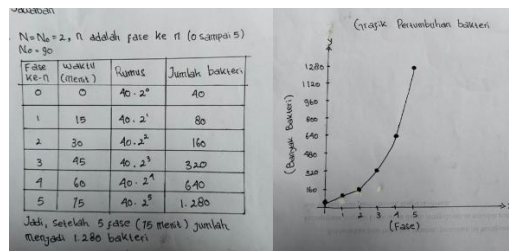 Jawaban
N=No=2, n adalah fase ke n (0 sampai 5)
No = 90
Fase ke-n Waktu (menit) Rumus Jumlah bakteri
0 0 40.2⁰ 40
1 15 40.2¹ 80
2 30 40.2² 160
3 45 40.2³ 320
4 60 40.2⁴ 640
5 75 40.2⁵ 1.280
Jadi, setelah 5 fase (75 menit) jumlah
menjadi 1.280 bakteri
Grafik Pertumbuhan bakteri
(Banyak Bakteri)
1280
1120
960
800
640
480
320
160
1 2 3 4 5
(Fase)